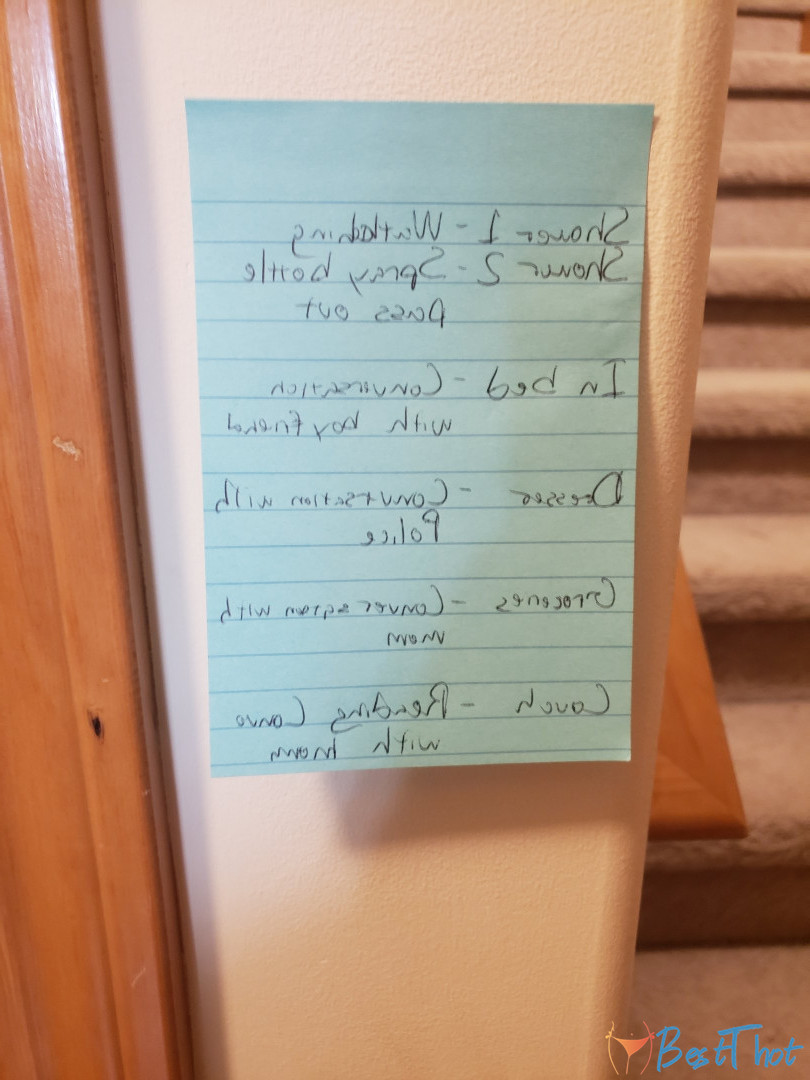 Shower 1 - Watching
Shower 2 - Spray bottle
pass out
In bed - Conversation
with boyfriend
Dresser - Conversation with
Police
Groceries - Conversation with
mom
Couch - Reading Convo
with mom
BestThot